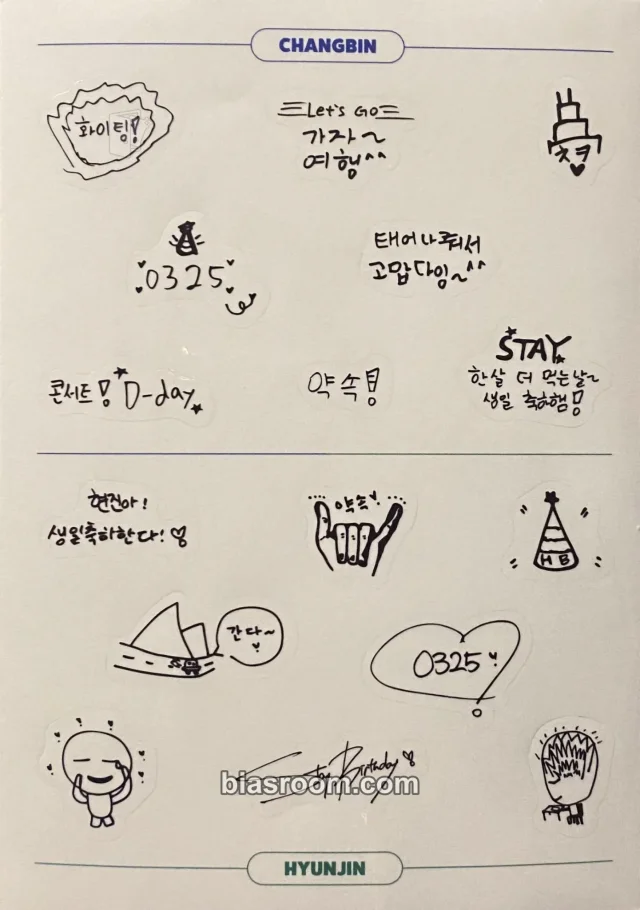 CHANGBIN
화이팅!
Let's Go
가자~
여행^^
츠키♥
0325
태어나줘서
고맙다임~^^
콘서트! D-day
약속!
STAY
한살 더 먹는날~
생일 축하햄!
현진아!
생일축하한다!♡
약속!
HB
간다~
0325
Stay Birthday♡
biasroom.com
HYUNJIN